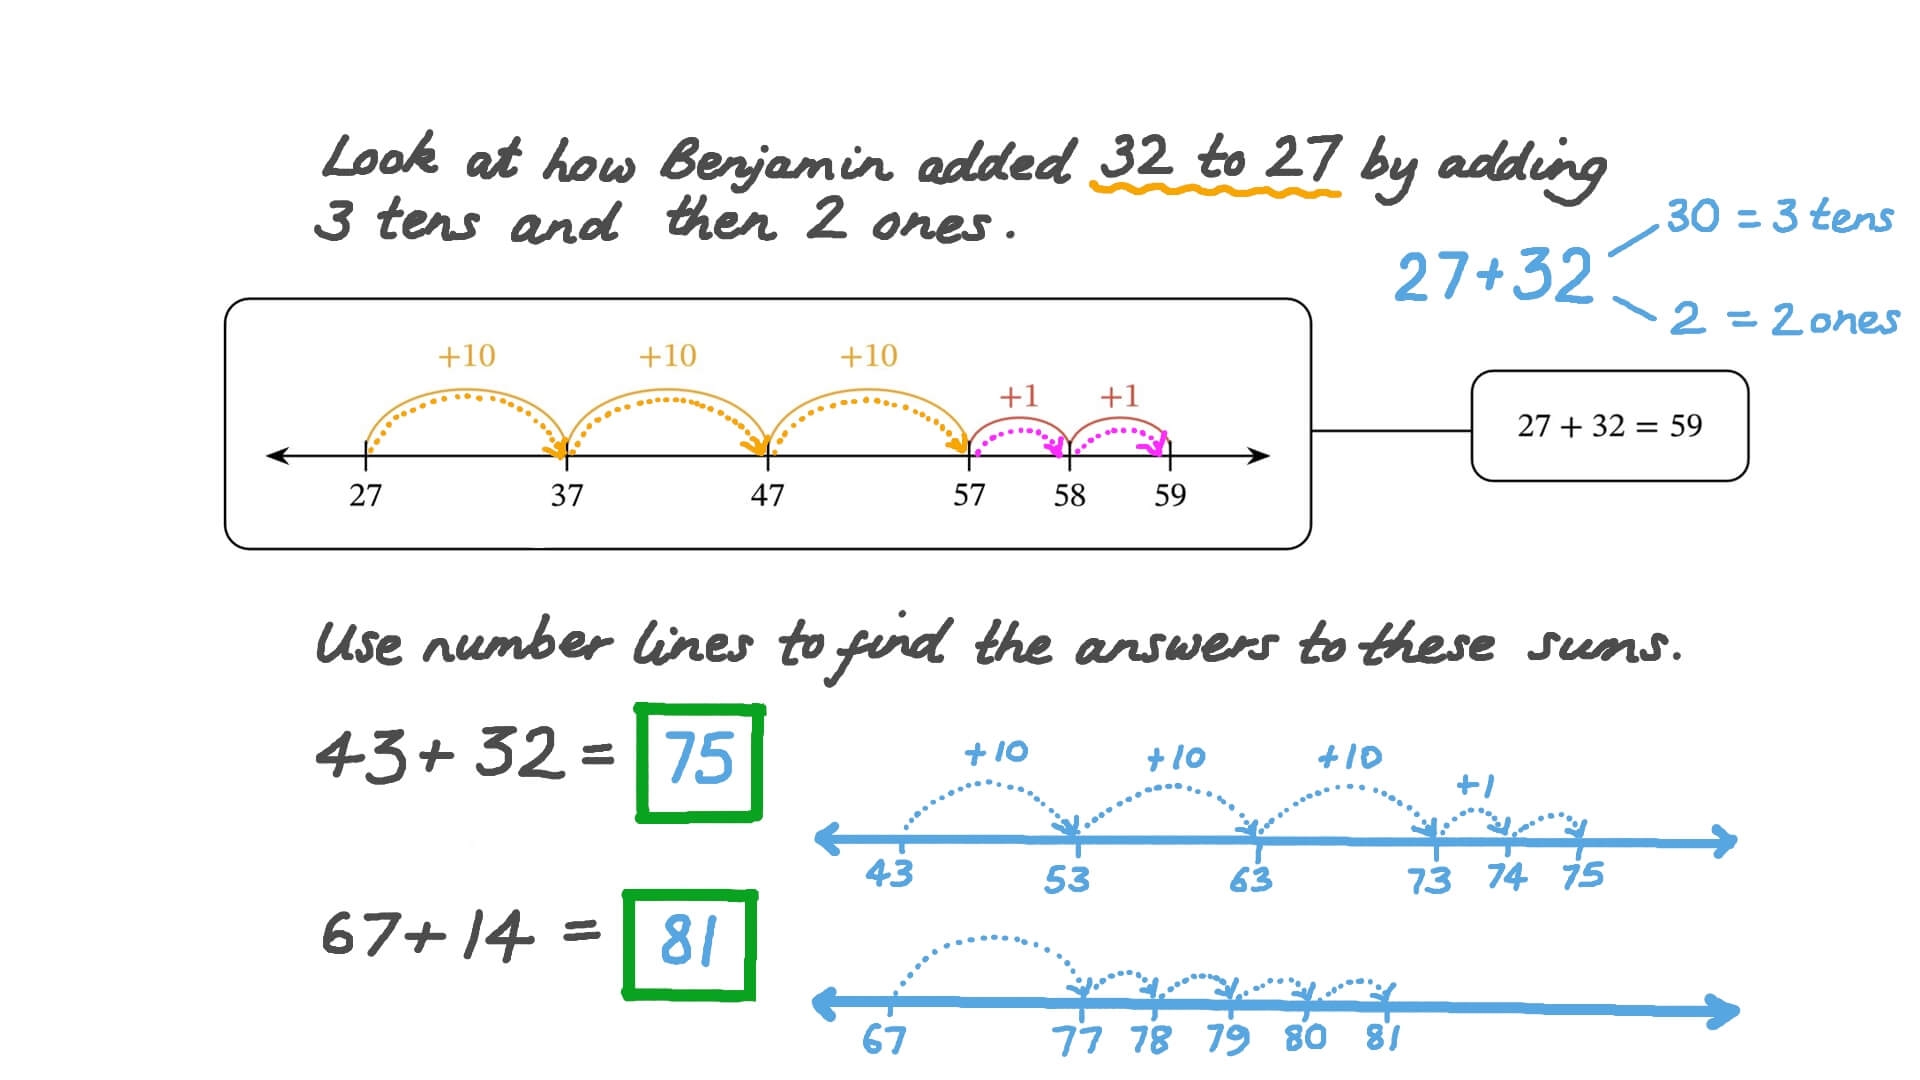 Look at how Benjamin added 32 to 27 by adding
3 tens and then 2 ones.
30 = 3 tens
27+32
2 = 2 ones
+10 +10 +10 +1 +1
27 37 47 57 58 59
27 + 32 = 59
Use number lines to find the answers to these sums.
43 + 32 = 75
+10 +10 +10 +1
43 53 63 73 74 75
67 + 14 = 81
67 77 78 79 80 81